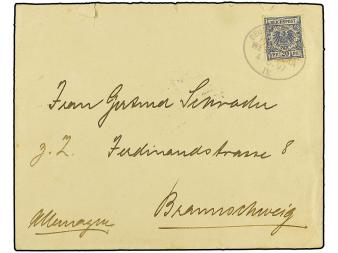 REICHSPOST
20
Frau Gertrud Schrader
z. Z. Ferdinandstrasse 8
Braunschweig
Allemagne